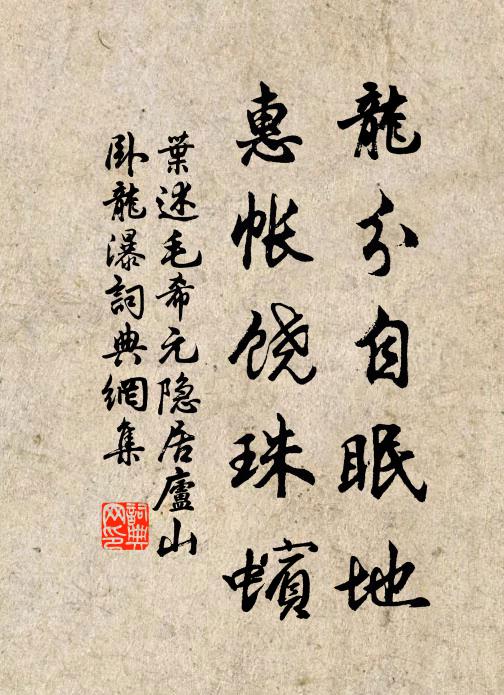 龍分自眠地
惠帐饶珠蠙
葉述毛希元隐居廬山
卧龍瀑詞典網集
詞典
网印